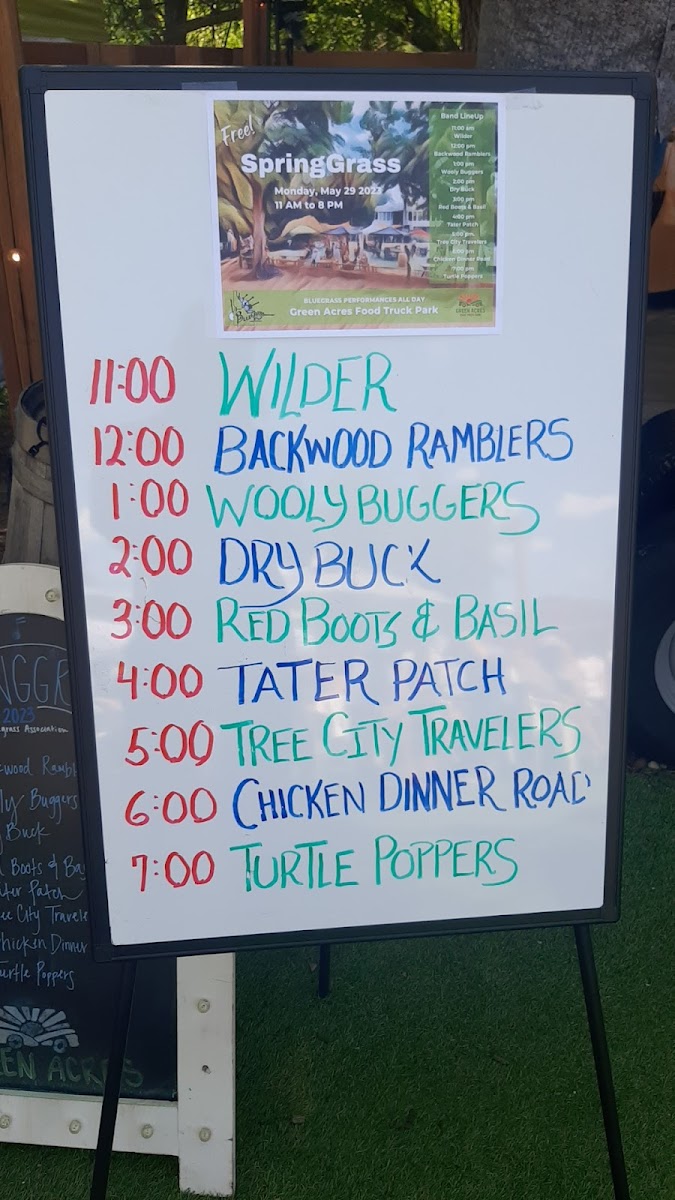 Free!
SpringGrass
Monday, May 29 2023
11 AM to 8 PM
Band LineUp
11:00 am
Wilder
12:00 pm
Backwood Ramblers
1:00 pm
Wooly Buggers
2:00 pm
Dry Buck
3:00 pm
Red Boots & Basil
4:00 pm
Tater Patch
5:00 pm
Tree City Travelers
6:00 pm
Chicken Dinner Road
7:00 pm
Turtle Poppers
BLUEGRASS PERFORMANCES ALL DAY
Green Acres Food Truck Park
GREEN ACRES
11:00 WILDER
12:00 BACKWOOD RAMBLERS
1:00 WOOLY BUGGERS
2:00 DRY BUCK
3:00 RED BOOTS & BASIL
4:00 TATER PATCH
5:00 TREE CITY TRAVELERS
6:00 CHICKEN DINNER ROAD
7:00 TURTLE POPPERS
NGGR
2023
grass Association
wood Rambl
ly Buggers
Buck
Boots & Ba
ter Patch
ee City Travele
hicken Dinner
urtle Poppers
EEN ACRES